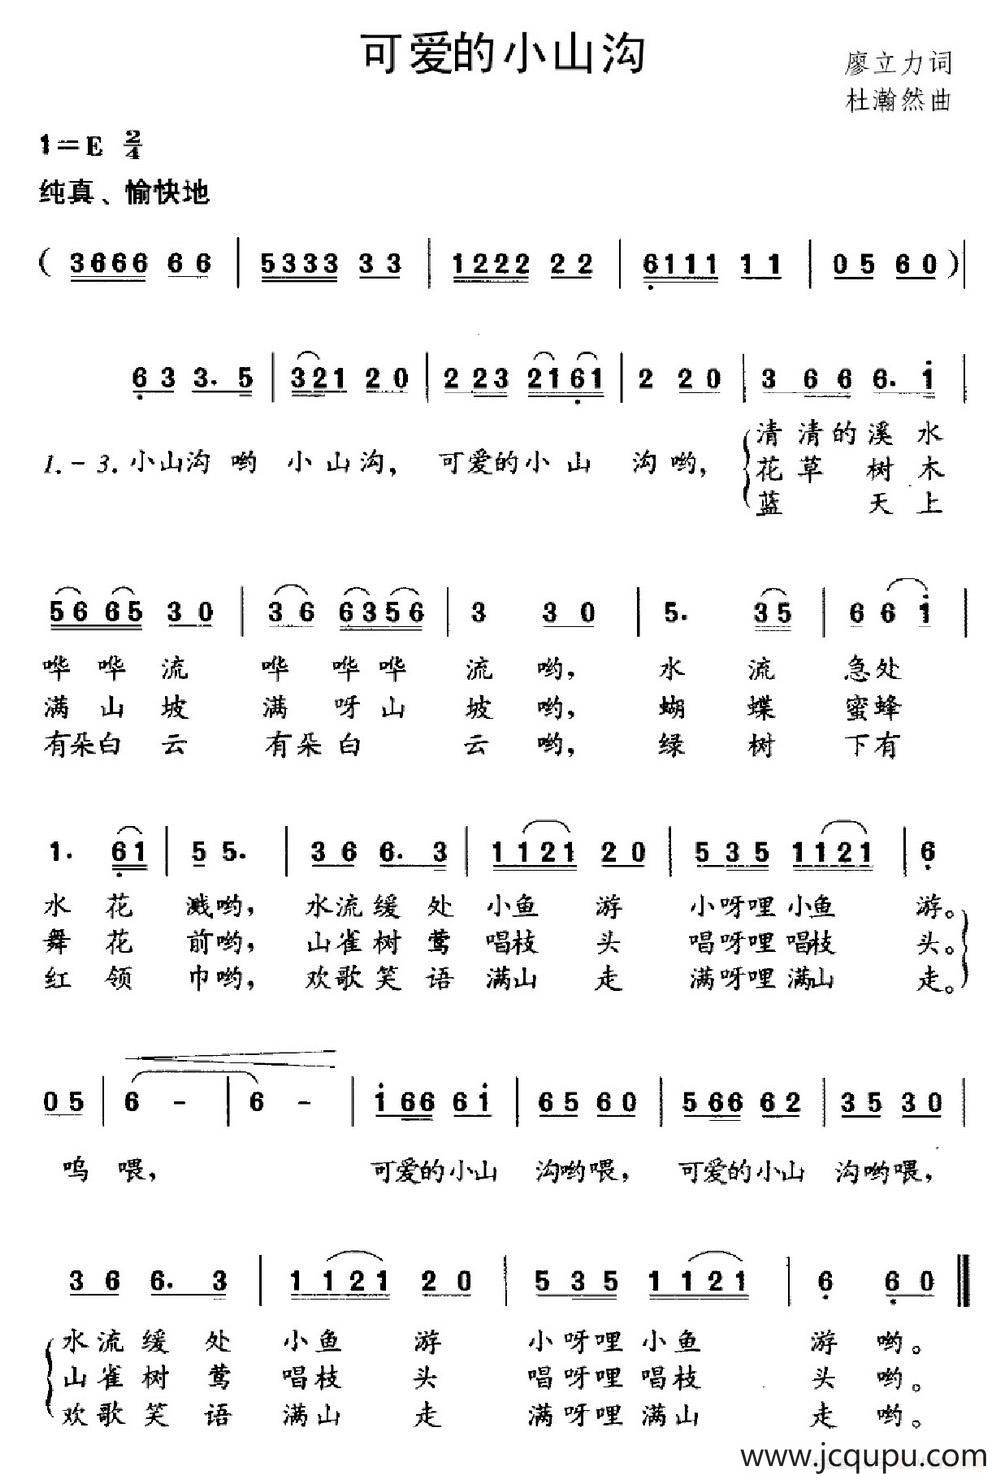 可爱的小山沟
廖立力词
杜瀚然曲
1=E 2/4
纯真、愉快地
( 3666 66 | 5333 33 | 1222 22 | 6111 11 | 05 60 ) |
63 3. 5 | 321 20 | 223 2161 | 2 20 | 3 66 6. 1 |
1.-3.小山沟 哟 小山沟, 可爱的小山 沟哟, 清清的溪水
花草 树木
蓝 天上
56 65 30 | 36 6356 | 3 30 | 5. 35 | 6 61 |
哗哗流 哗哗哗 流哟, 水流急处
满山坡 满呀山 坡哟, 蝴蝶蜜蜂
有朵白云 有朵白 云哟, 绿树下有
1. 61 | 5 5. | 36 6. 3 | 1121 20 | 535 1121 | 6
水花 溅哟, 水流缓处 小鱼游 小呀哩小鱼 游。
舞花 前哟, 山雀树莺 唱枝头 唱呀哩唱枝 头。
红领 巾哟, 欢歌笑语 满山走 满呀哩满山 走。
05 | 6 - | 6 - | 166 61 | 65 60 | 566 62 | 35 30 |
呜喂, 可爱的小山 沟哟喂, 可爱的小山 沟哟喂,
36 6. 3 | 1121 20 | 535 1121 | 6 60 ||
水流缓处 小鱼游 小呀哩小鱼 游哟。
山雀树莺 唱枝头 唱呀哩唱枝 头哟。
欢歌笑语 满山走 满呀哩满山 走哟。
www.jcqupu.com